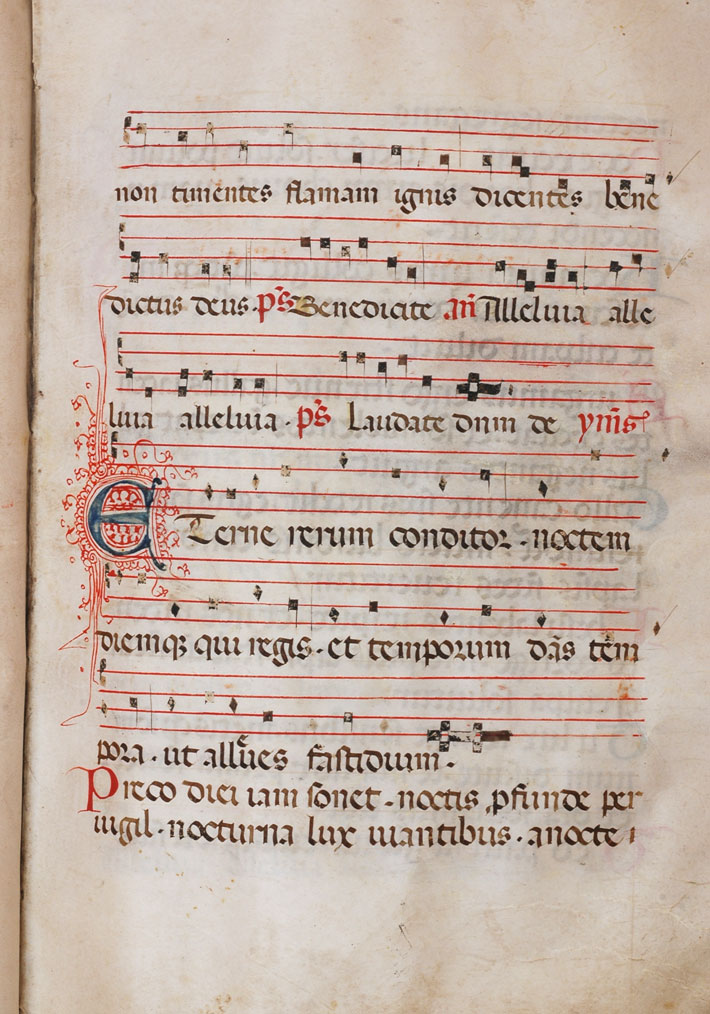 non timentes flamam ignis dicentes bene
dictus deus. p̄s Benedicite añ Alleluia alle
luia alleluia. p̄s Laudate dnm de ymꝰs
ETerne rerum conditor. noctem
diemqꝫ qui regis. et temporum dās tem
pora. ut alleues fastidium.
Preco diei iam sonet. noctis ꝓfunde per
uigil. nocturna lux uiantibus. anocte